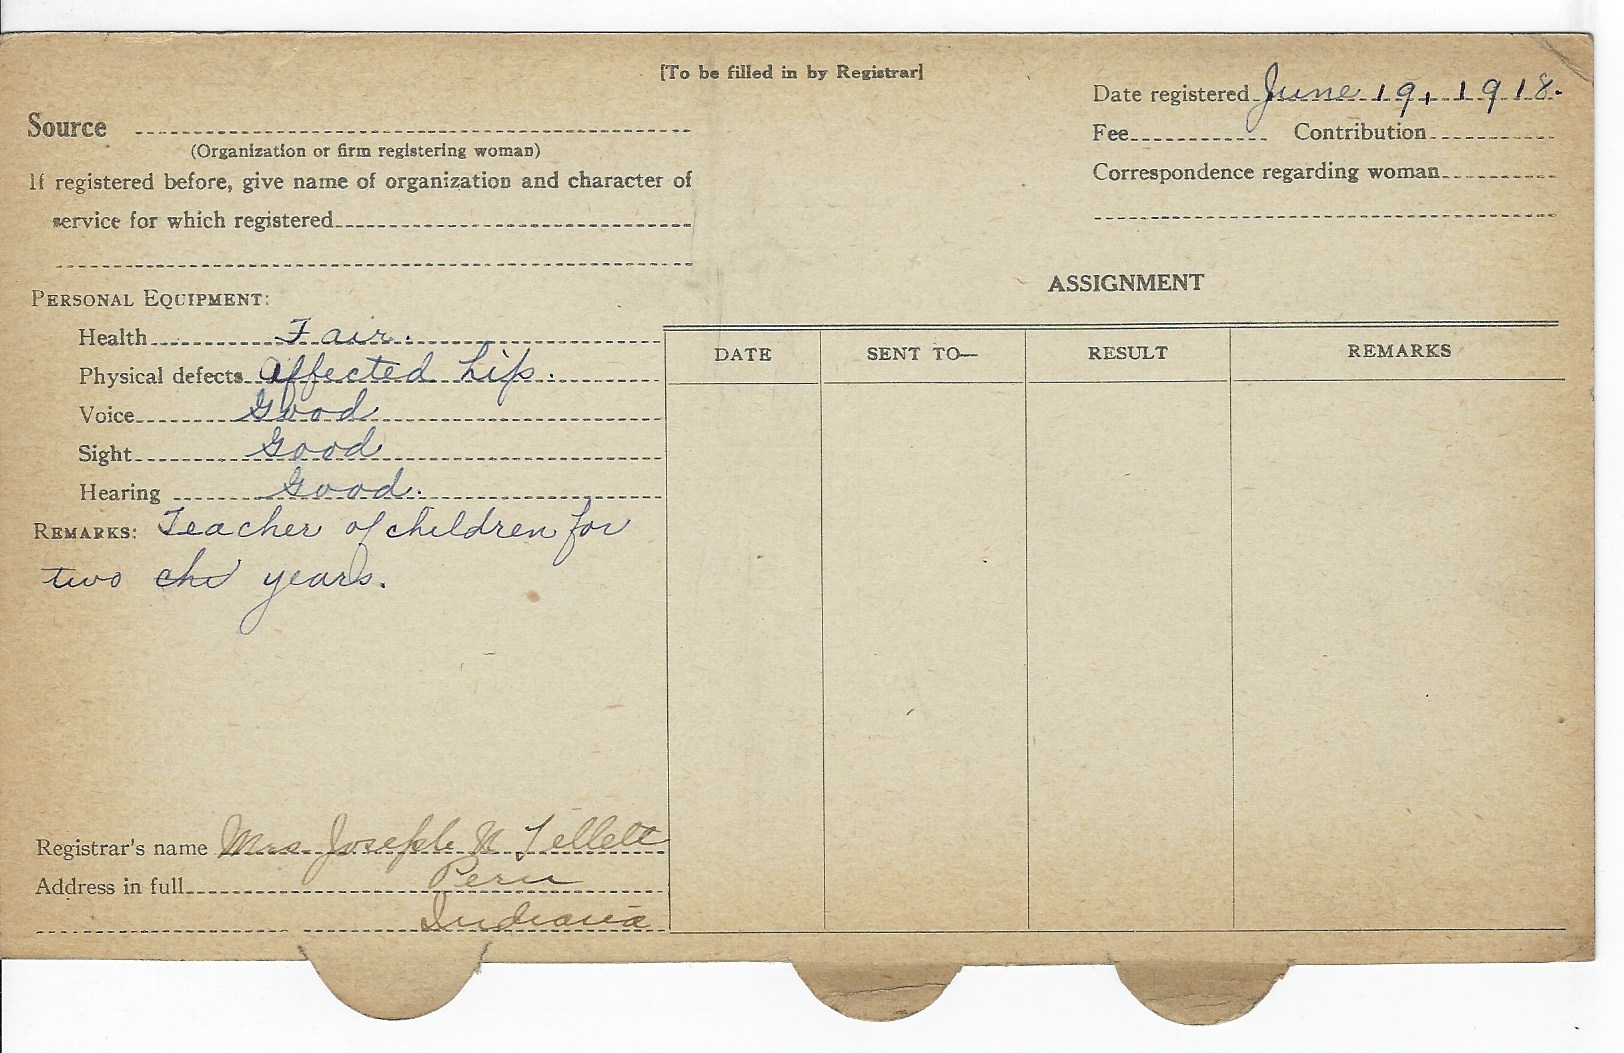 [To be filled in by Registrar]
Date registered June 19, 1918.
Fee Contribution
Correspondence regarding woman
Source
(Organization or firm registering woman)
If registered before, give name of organization and character of
service for which registered
PERSONAL EQUIPMENT:
Health Fair.
Physical defects Affected hip.
Voice Good
Sight Good
Hearing Good.
REMARKS: Teacher of children for
two chi years.
Registrar's name Mrs Joseph N Tillett
Address in full Peru
Indiana
ASSIGNMENT
DATE SENT TO— RESULT REMARKS